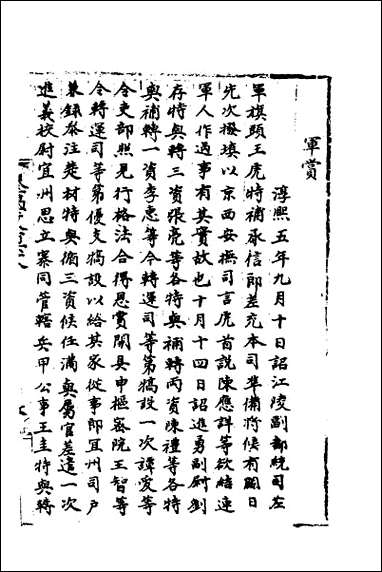 軍賞
淳熙五年九月十日詔江陵副都統司左
軍旗頭王虎時補承信郎差充本司準備將候有闕日
先次撥填以京西安撫司言虎首說陳應詳等欲結連
軍人作過事有其實故也十月十四日詔進勇副尉劉
存特與轉三資張亮等各特與補轉兩資陳禮等各特
與補轉一資李忠等令轉運司等第犒設一次譚愛等
令吏部照見行格法合得恩賞開具申樞密院王智等
令轉運司等第優支犒設以給其家從事郎宜州司戶
兼錄參注楚材特與循三資候任滿與屬官差遣一次
進義校尉宜州思立寨同管轄兵甲公事王圭特與轉